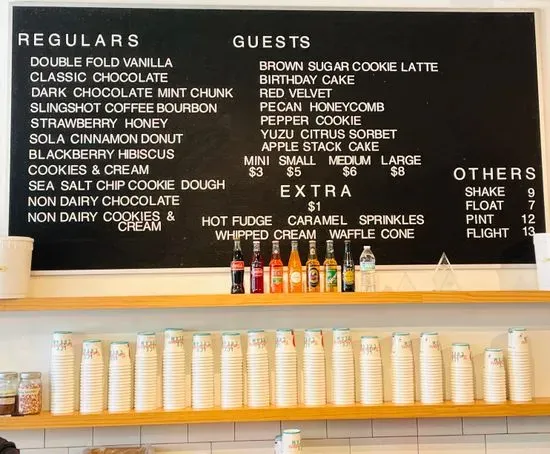 REGULARS
DOUBLE FOLD VANILLA
CLASSIC CHOCOLATE
DARK CHOCOLATE MINT CHUNK
SLINGSHOT COFFEE BOURBON
STRAWBERRY HONEY
SOLA CINNAMON DONUT
BLACKBERRY HIBISCUS
COOKIES & CREAM
SEA SALT CHIP COOKIE DOUGH
NON DAIRY CHOCOLATE
NON DAIRY COOKIES &
CREAM
GUESTS
BROWN SUGAR COOKIE LATTE
BIRTHDAY CAKE
RED VELVET
PECAN HONEYCOMB
PEPPER COOKIE
YUZU CITRUS SORBET
APPLE STACK CAKE
MINI SMALL MEDIUM LARGE
$3 $5 $6 $8
EXTRA
$1
HOT FUDGE CARAMEL SPRINKLES
WHIPPED CREAM WAFFLE CONE
OTHERS
SHAKE 9
FLOAT 7
PINT 12
FLIGHT 13